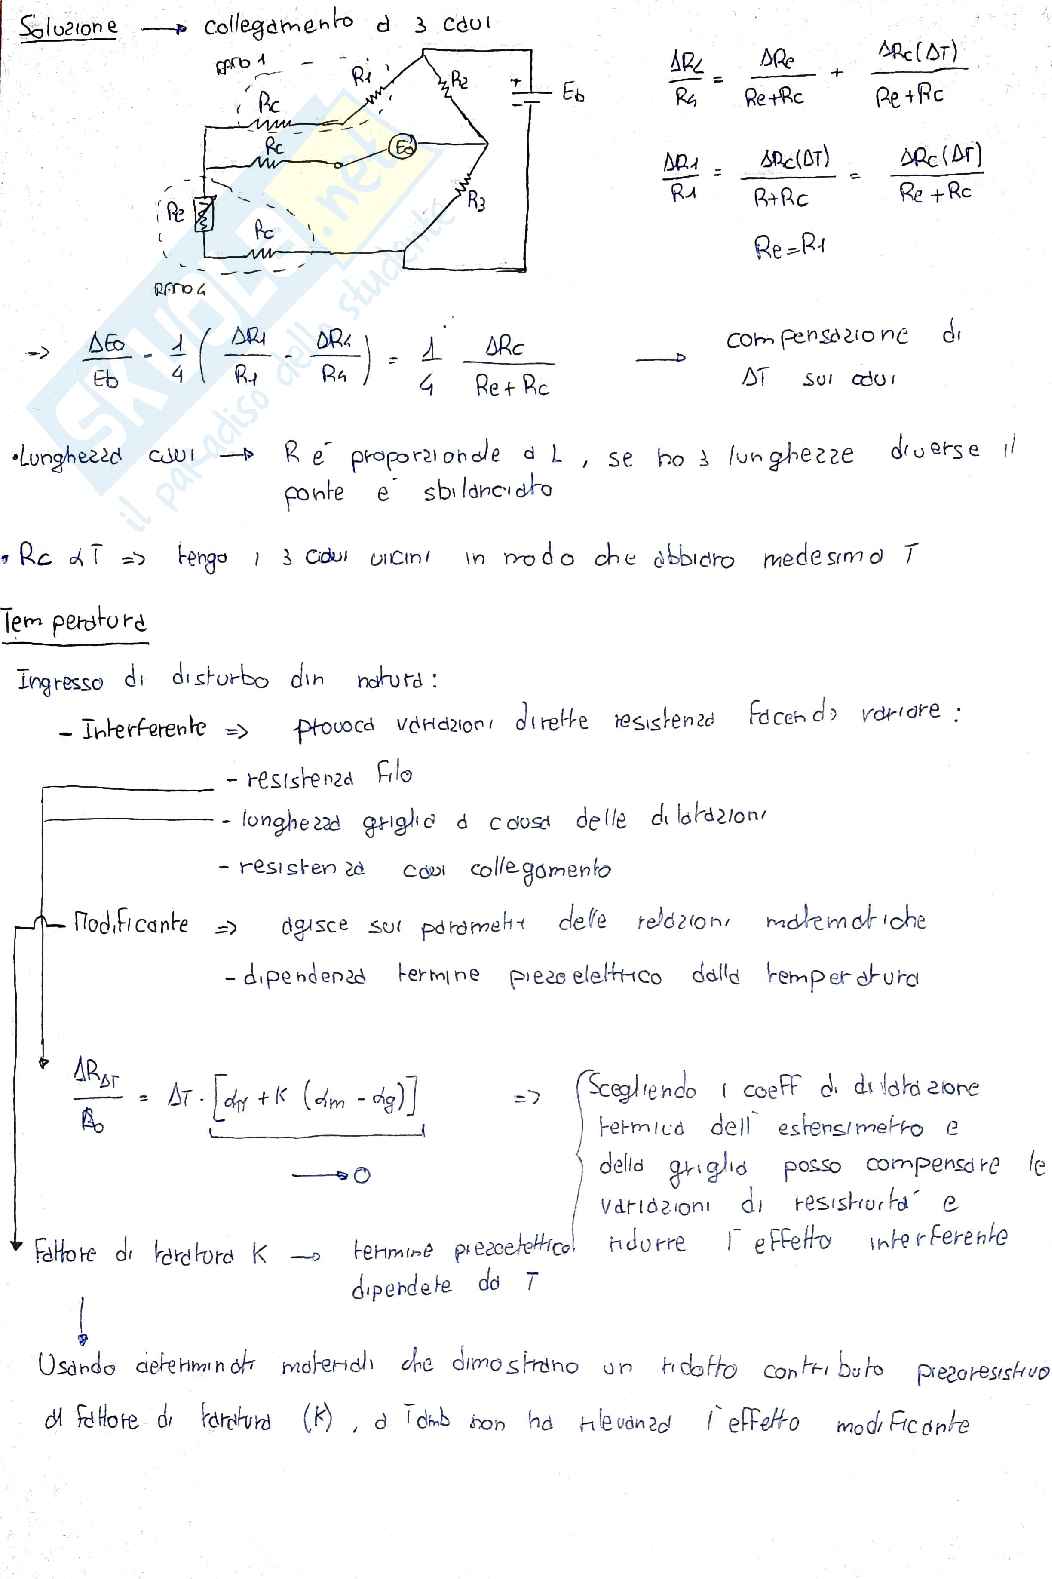 Soluzione → collegamento a 3 cavi
RAMO 1
R1
R2
Rc
Eb
Rc
Eo
Re
R3
Rc
RAMO 4
ΔR4/R4 = ΔRe/(Re+Rc) + ΔRc(ΔT)/(Re+Rc)
ΔR1/R1 = ΔRc(ΔT)/(R+Rc) = ΔRc(ΔT)/(Re+Rc)
Re=R1
=> ΔEo/Eb - 1/4 (ΔR1/R1 - ΔR4/R4) = 1/4 ΔRc/(Re+Rc) → compensazione di
ΔT sui cavi
• Lunghezza cavi → R è proporzionale a L, se ho 3 lunghezze diverse il
ponte è sbilanciato
• Rc α T => tengo i 3 cavi vicini in modo che abbiano medesima T
Temperatura
Ingresso di disturbo din natura:
- Interferente => provoca variazioni dirette resistenza facendo variare:
- resistenza filo
- lunghezza griglia a causa delle dilatazioni
- resistenza cavi collegamento
- Modificante => agisce sui parametri delle relazioni matematiche
- dipendenza termine piezoelettrico dalla temperatura
ΔRΔT/Ro = ΔT · [αr + K (αm - αg)] => Scegliendo i coeff di dilatazione
termica dell'estensimetro e
→ 0
della griglia posso compensare le
variazioni di resistività e
ridurre l'effetto interferente
Fattore di taratura K → termine piezoelettico
dipendete da T
Usando determinati materiali che dimostrano un ridotto contributo piezoresistivo
al fattore di taratura (K), a Tamb non ha rilevanza l'effetto modificante
SKUOLA.net
il paradiso dello studente